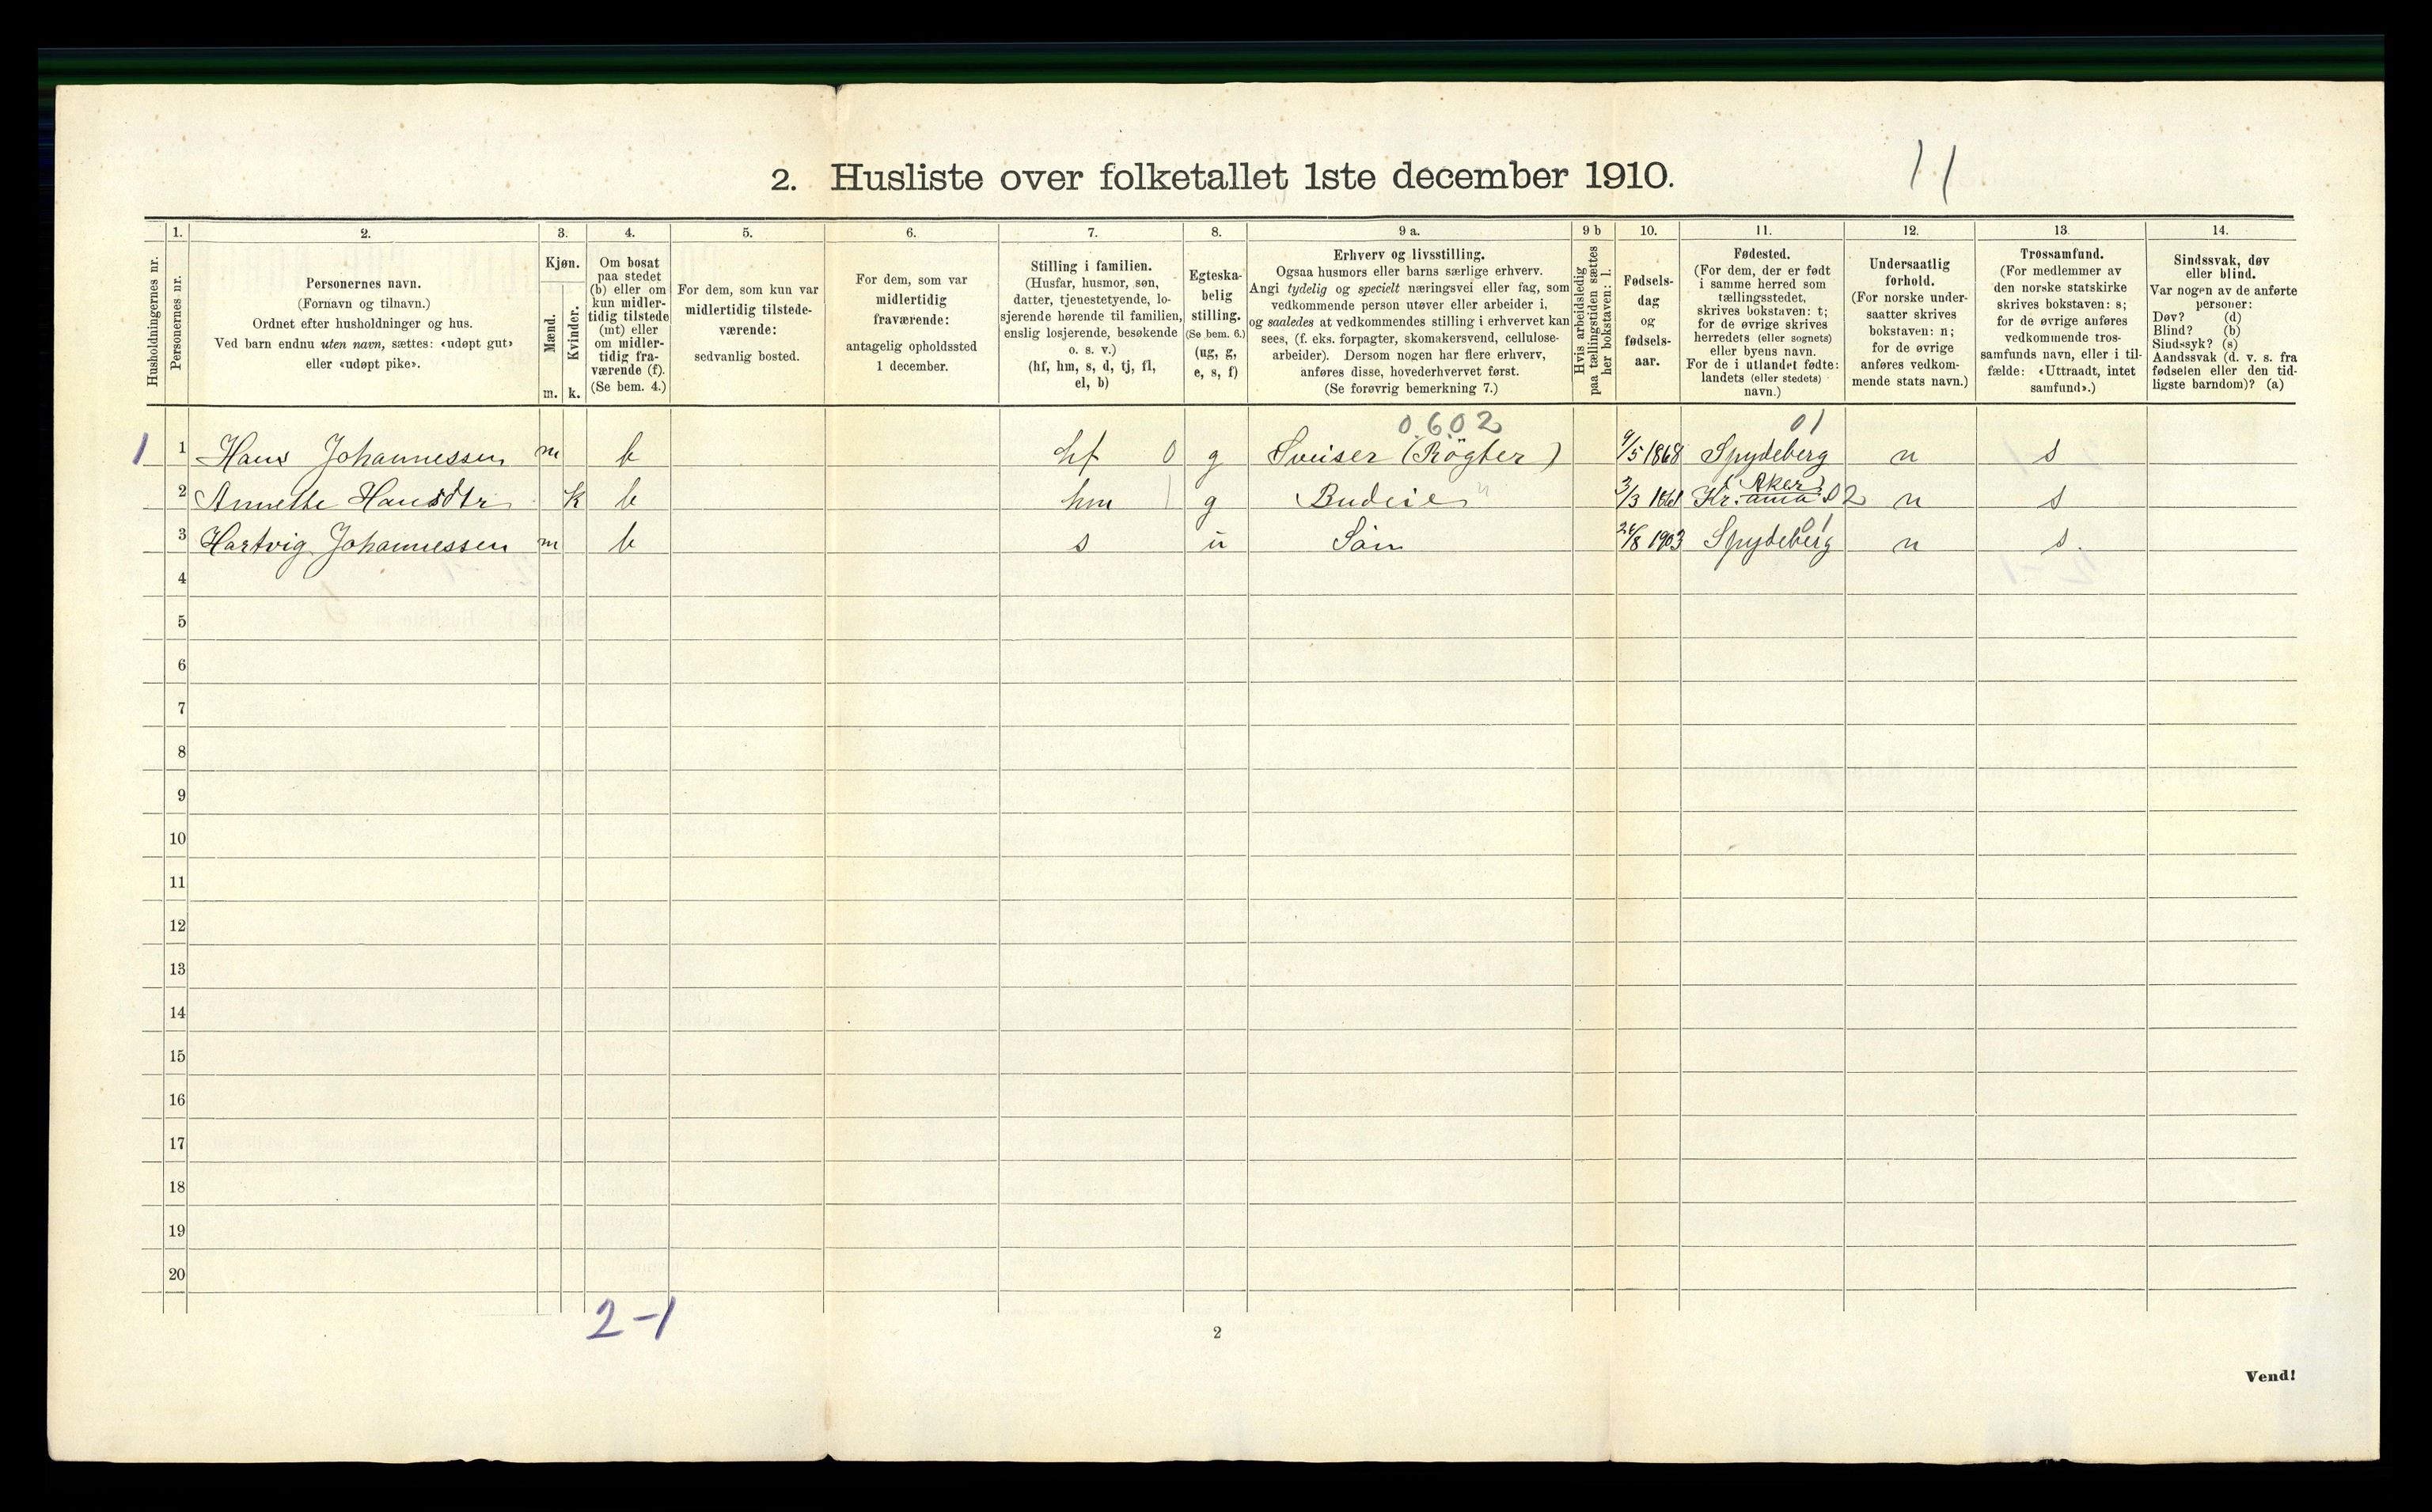 11
2. Husliste over folketallet 1ste december 1910.
Husholdningernes nr.
1.
Personernes nr.
2.
Personernes navn.
(Fornavn og tilnavn.)
Ordnet efter husholdninger og hus.
Ved barn endnu uten navn, sættes: «udøpt gut»
eller «udøpt pike».
3.
Kjøn.
Mænd.
Kvinder.
m. k.
4.
Om bosat
paa stedet
(b) eller om
kun midler-
tidig tilstede
(mt) eller
om midler-
tidig fra-
værende (f).
(Se bem. 4.)
5.
For dem, som kun var
midlertidig tilstede-
værende:
sedvanlig bosted.
6.
For dem, som var
midlertidig
fraværende:
antagelig opholdssted
1 december.
7.
Stilling i familien.
(Husfar, husmor, søn,
datter, tjenestetyende, lo-
sjerende hørende til familien,
enslig losjerende, besøkende
o. s. v.)
(hf, hm, s, d, tj, fl,
el, b)
8.
Egteska-
belig
stilling.
(Se bem. 6.)
(ug, g,
e, s, f)
9 a.
Erhverv og livsstilling.
Ogsaa husmors eller barns særlige erhverv.
Angi tydelig og specielt næringsvei eller fag, som
vedkommende person utøver eller arbeider i,
og saaledes at vedkommendes stilling i erhvervet kan
sees, (f. eks. forpagter, skomakersvend, cellulose-
arbeider). Dersom nogen har flere erhverv,
anføres disse, hovederhvervet først.
(Se forøvrig bemerkning 7.)
9 b
Hvis arbeidsledig
paa tællingstiden sættes
her bokstaven: l.
10.
Fødsels-
dag
og
fødsels-
aar.
11.
Fødested.
(For dem, der er født
i samme herred som
tællingsstedet,
skrives bokstaven: t;
for de øvrige skrives
herredets (eller sognets)
eller byens navn.
For de i utlandet fødte:
landets (eller stedets)
navn.)
12.
Undersaatlig
forhold.
(For norske under-
saatter skrives
bokstaven: n;
for de øvrige
anføres vedkom-
mende stats navn.)
13.
Trossamfund.
(For medlemmer av
den norske statskirke
skrives bokstaven: s;
for de øvrige anføres
vedkommende tros-
samfunds navn, eller i til-
fælde: «Uttraadt, intet
samfund».)
14.
Sindssvak, døv
eller blind.
Var nogen av de anførte
personer:
Døv? (d)
Blind? (b)
Sindssyk? (s)
Aandssvak (d. v. s. fra
fødselen eller den tid-
ligste barndom)? (a)
0602 01
1 1 Hans Johannessen m b hf 0 g Sveiser (Røgter) 9/5 1868 Spydeberg n s
(Aker)
2 Annette Hansdtr k b hm 1 g Budeie 3/3 Kr.ania 02 n s
01
3 Hartvig Johannessen m b s u Søn 1903 Spydeberg n s.
4
5
6
7
8
9
10
11
12
13
14
15
16
17
18
19
20
2-1
2
Vend!